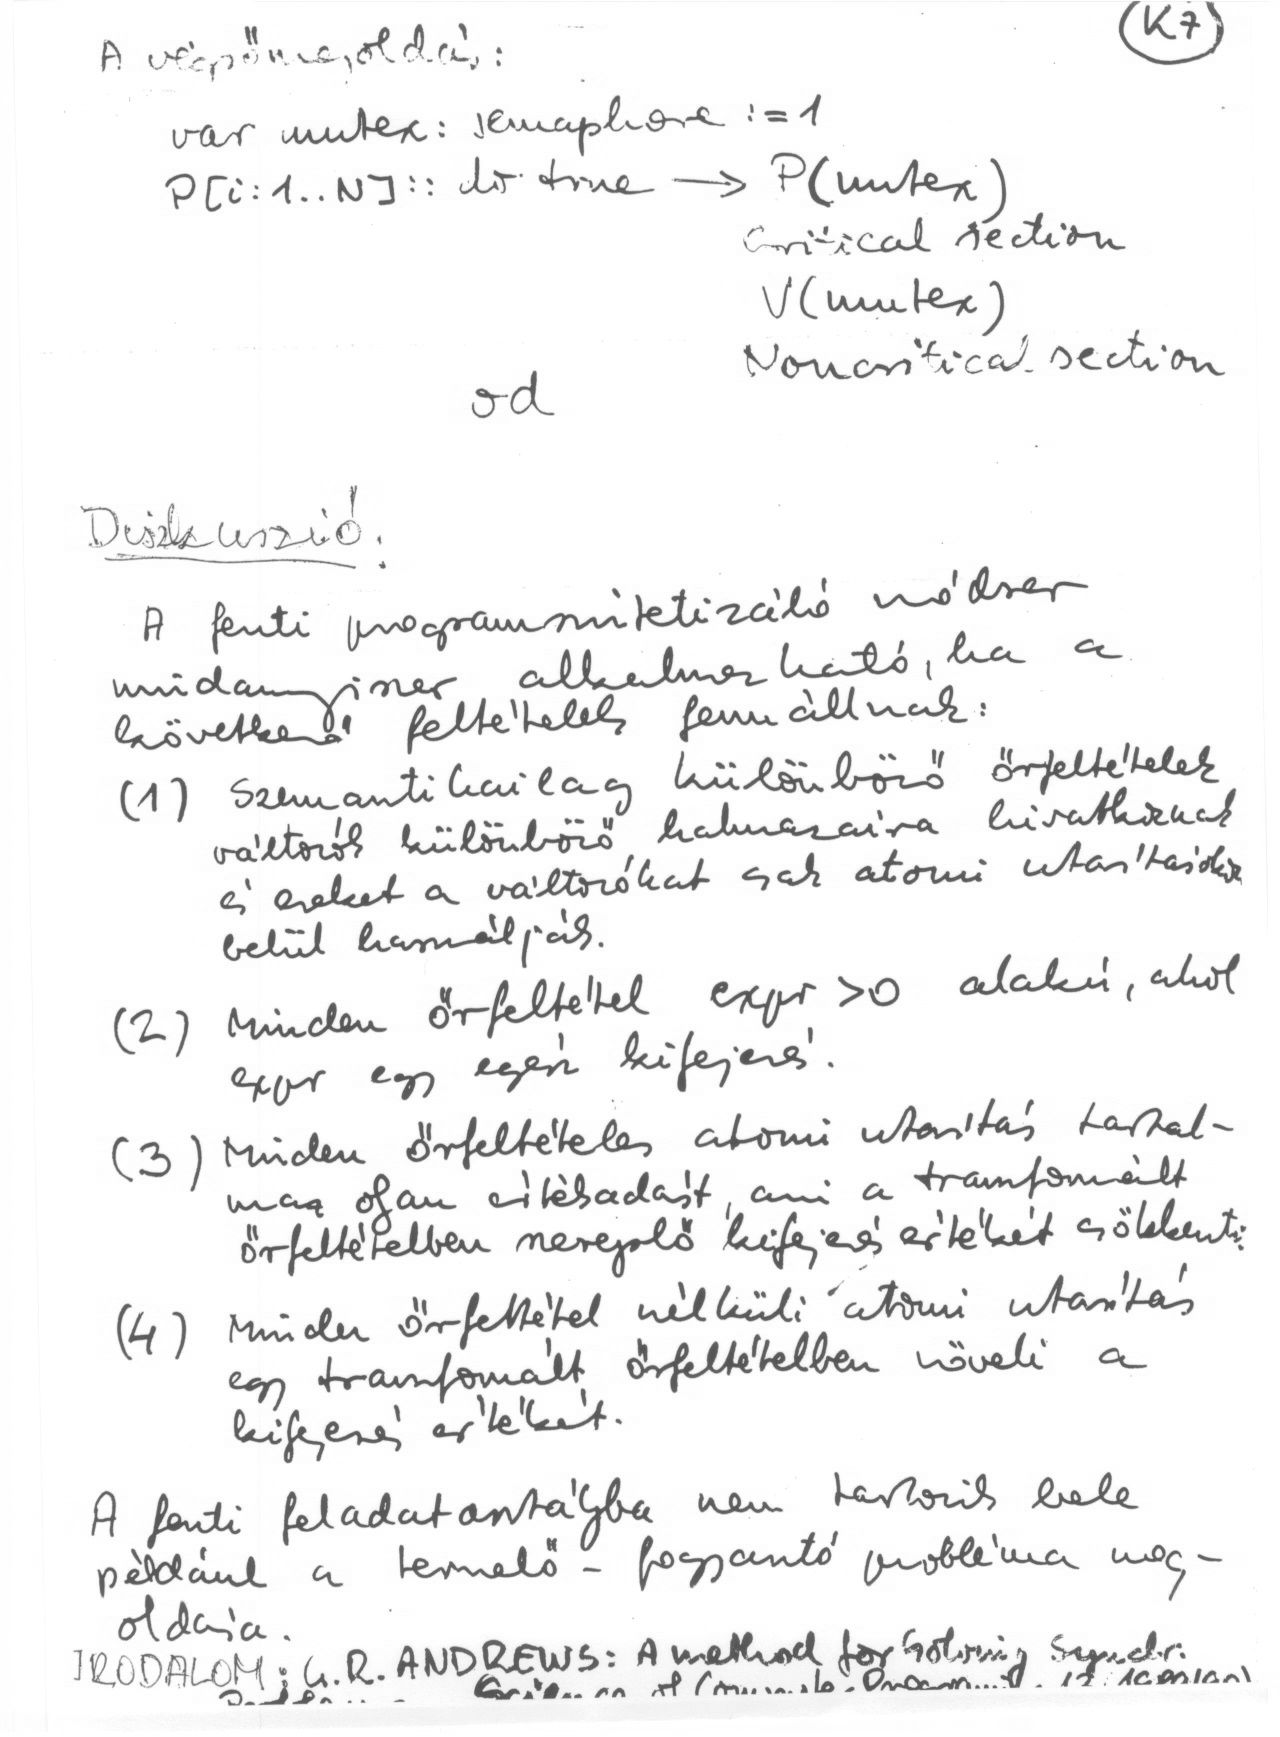 K7
A végső megoldás:
var mutex: semaphore := 1
P[i:1..N]:: do true → P(mutex)
Critical section
V(mutex)
Noncritical section
od
Diszkusszió:
A fenti programszintetizáló módszer
mindannyiszor alkalmazható, ha a
következő feltételek fennállnak:
(1) Szemantikailag különböző őrfeltételek
változók különböző halmazaira hivatkoznak
és ezeket a változókat csak atomi utasításokon
belül használják.
(2) Minden őrfeltétel expr >0 alakú, ahol
expr egy egész kifejezés.
(3) Minden őrfeltételes atomi utasítás tartal-
maz olyan értékadást, ami a transzformált
őrfeltételben szereplő kifejezés értékét csökkenti.
(4) Minden őrfeltétel nélküli atomi utasítás
egy transzformált őrfeltételben növeli a
kifejezés értékét.
A fenti feladatosztályba nem tartozik bele
például a termelő - fogyasztó probléma meg-
oldása.
IRODALOM: G.R. ANDREWS: A method for Solving Synchr.
Science of Computer Programming